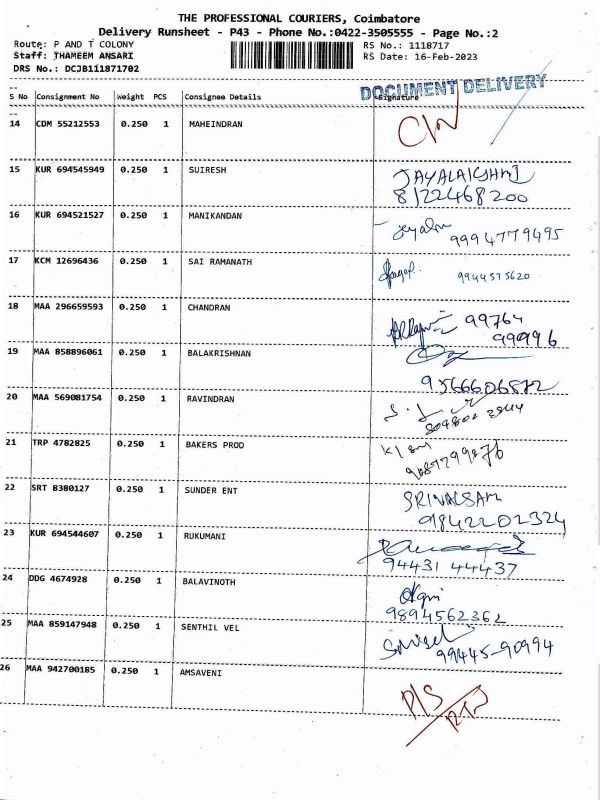 THE PROFESSIONAL COURIERS, Coimbatore
Delivery Runsheet - P43 - Phone No.:0422-3505555 - Page No.:2
Route: P AND T COLONY RS No.: 1118717
Staff: THAMEEM ANSARI RS Date: 16-Feb-2023
DRS No.: DCJB111871702
DOCUMENT DELIVERY
S No Consignment No Weight PCS Consignee Details Signature
14 CDM 55212553 0.250 1 MAHEINDRAN
15 KUR 694545949 0.250 1 SUIRESH JAYALAKSHMI
8122468200
16 KUR 694521527 0.250 1 MANIKANDAN
9994779495
17 KCM 12696436 0.250 1 SAI RAMANATH 9944575620
18 MAA 296659593 0.250 1 CHANDRAN 99764
99996
19 MAA 858896061 0.250 1 BALAKRISHNAN
9566606872
20 MAA 569081754 0.250 1 RAVINDRAN
21 TRP 4782825 0.250 1 BAKERS PROD
22 SRT 8380127 0.250 1 SUNDER ENT SRIVALSAN
09842202324
23 KUR 694544607 0.250 1 RUKUMANI
94431 44437
24 DDG 4674928 0.250 1 BALAVINOTH
9894562362
25 MAA 859147948 0.250 1 SENTHIL VEL
99445-90994
26 MAA 942700185 0.250 1 AMSAVENI